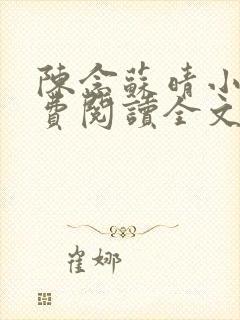 陳念蘇晴小
費閱讀全文
崔娜